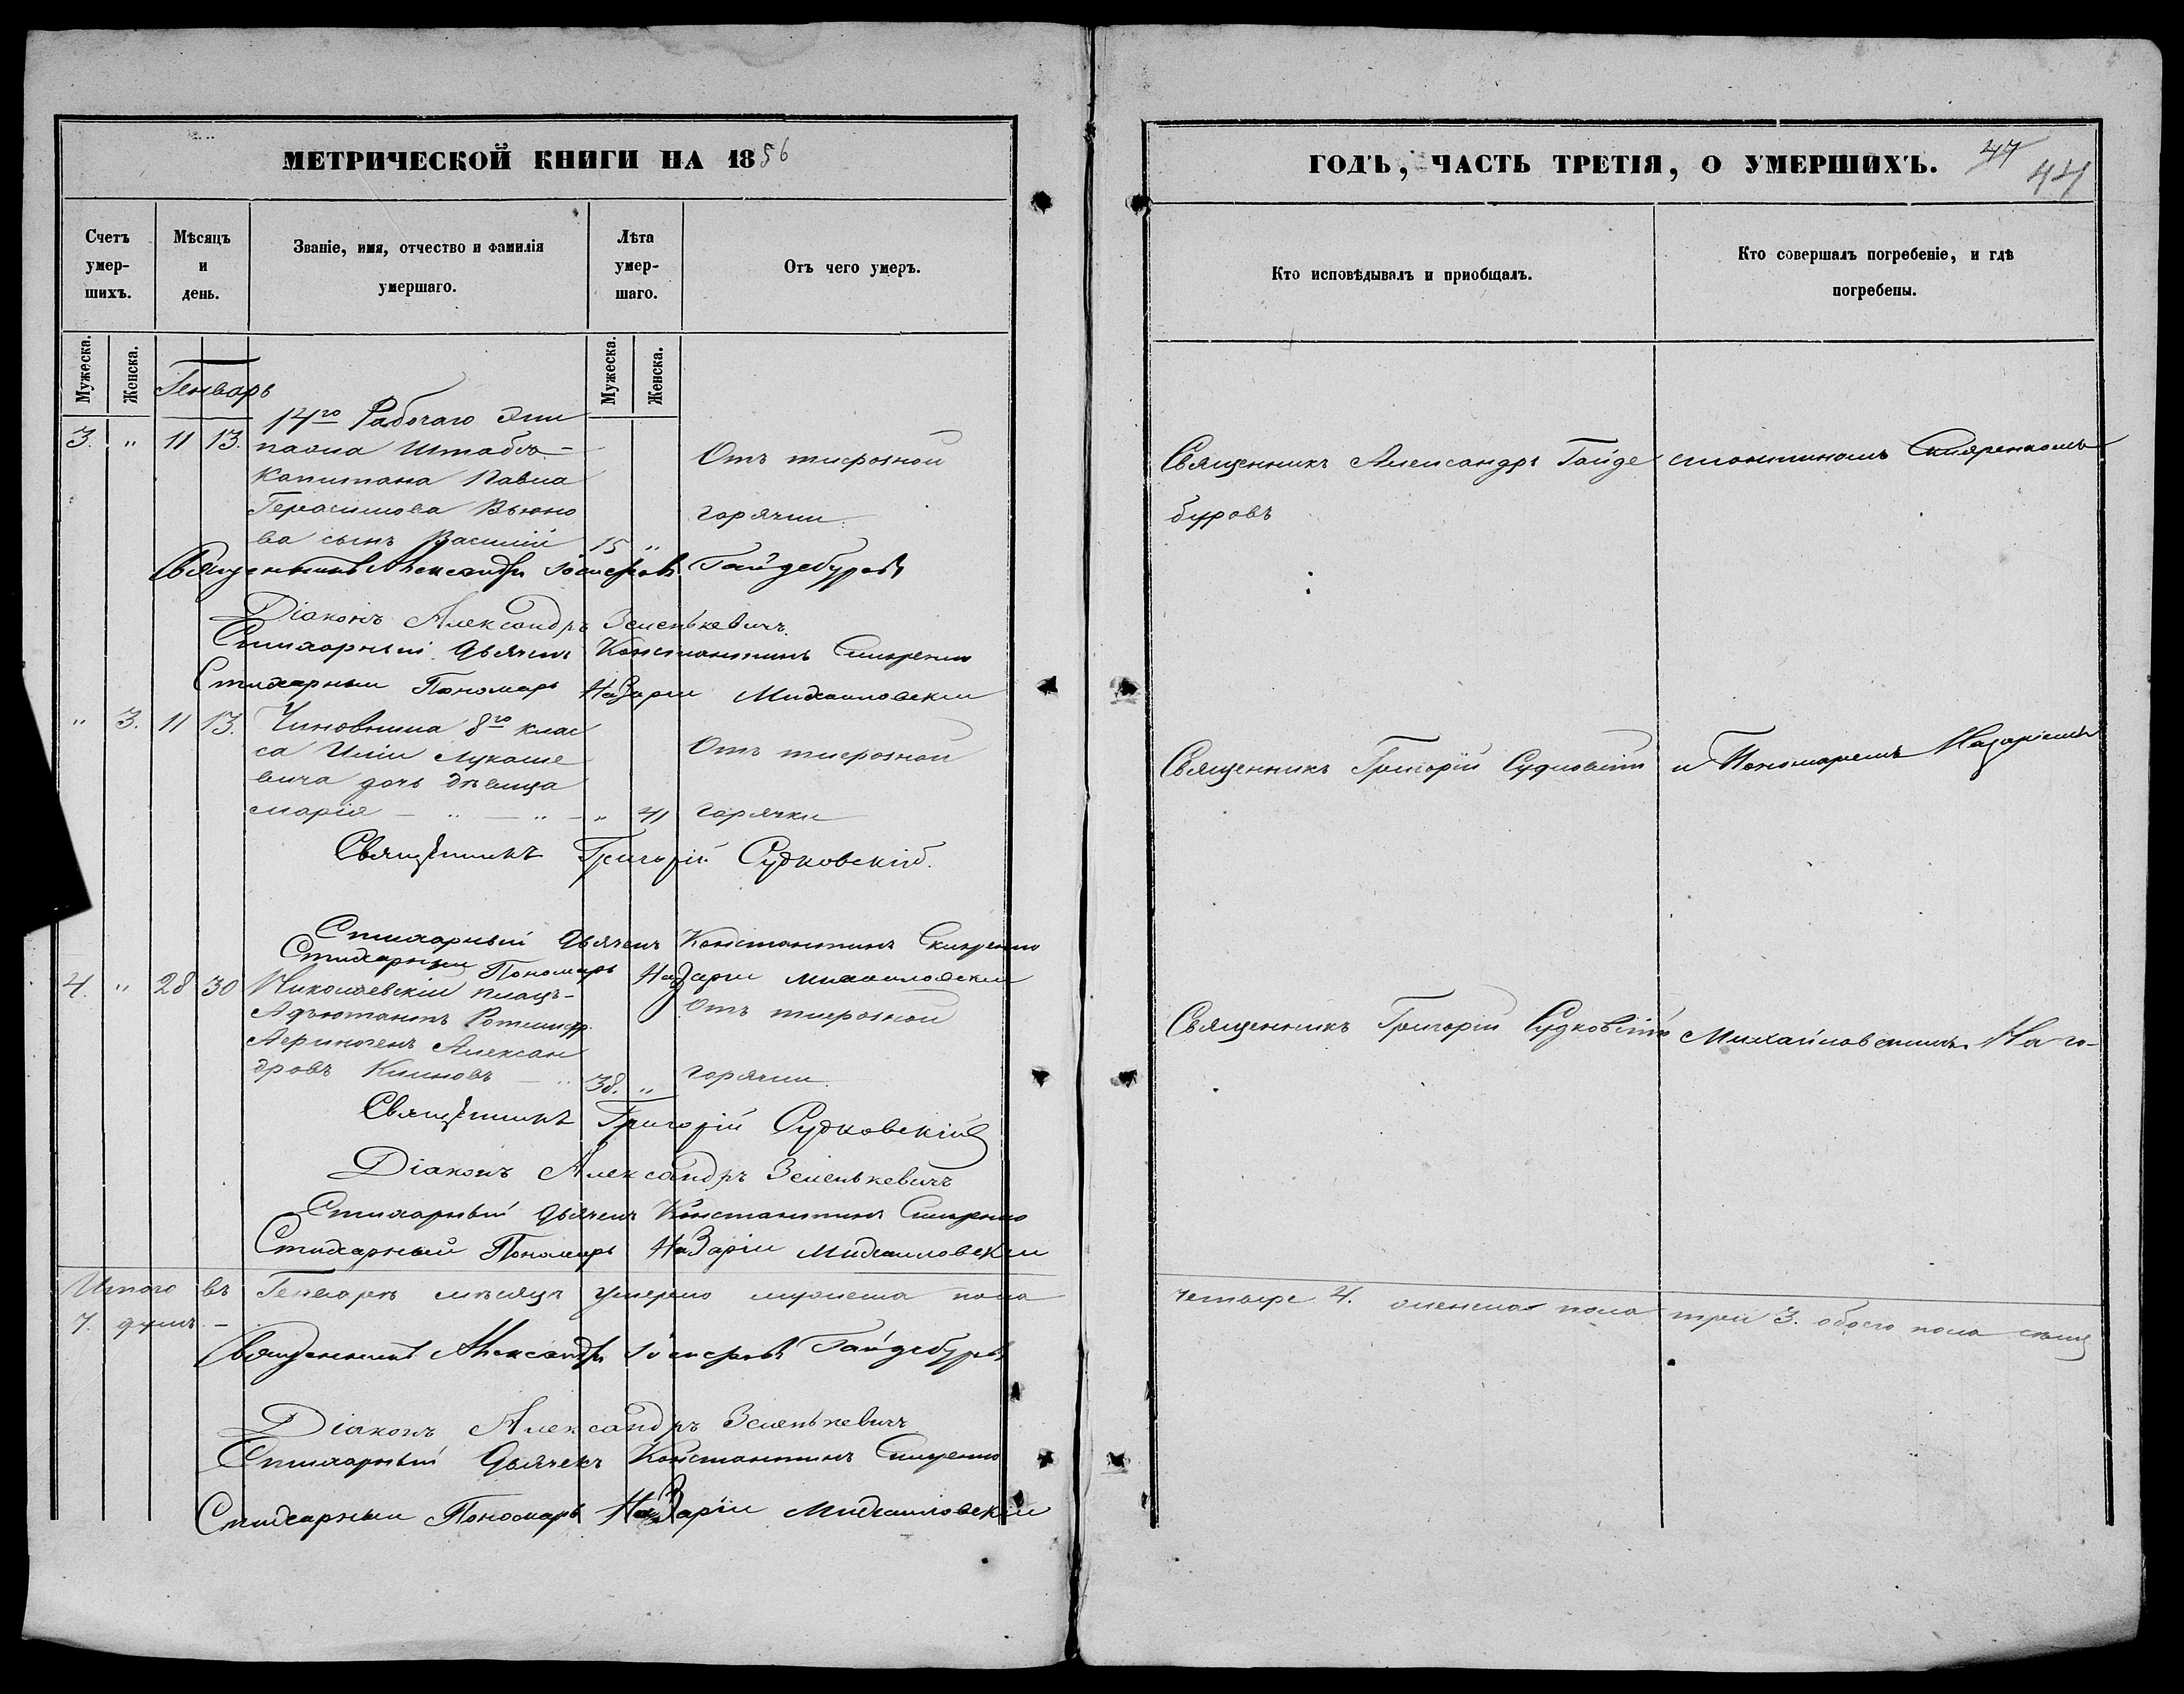 МЕТРИЧЕСКОЙ КНИГИ НА 1856
Счетъ умер- шихъ.
Мѣсяцъ и день.
Званіе, имя, отчество и фамилія умершаго.
Лѣта умер- шаго.
Отъ чего умеръ.
Мужеска. Женска.
Мужеска. Женска.
Генварь
14го Рабочаго Эки
3. " 11 13. пажа Штабсъ- Отъ тифозной
Капитана Павла
Герасимова Вьюно горячки.
ва сынъ Василій 15 "
Священникъ Александръ Гайдебуровъ
Діаконъ Александръ Зеленькевичъ.
Стихарный Дьячекъ Константинъ Скляренко
Стихарный Пономарь Назарій Михайловскій
" 3. 11 13. Чиновника 8го клас
са Иліи Лукаше Отъ тифозной
вича дочь дѣвица
Марія — " — " — " 41 горячки
Священникъ Григорій Судковскій.
Стихарный Дьячекъ Константинъ Скляренко
Стихарный Пономарь Назарій Михайловскій
4. " 28 30 Николаевскій плацъ-
Адъютантъ Ротмистр. Отъ тифозной
Алексан
дровъ Климовъ — " 38. " горячки.
Священникъ Григорій Судковскій
Діаконъ Александръ Зеленькевичъ
Стихарный Дьячекъ Константинъ Скляренко
Стихарный Пономарь Назарій Михайловскій
Итого въ Генварѣ мѣсяцѣ умерло мужеска пола
7. душъ. —
Священникъ Александръ Гайдебуровъ
Діаконъ Александръ Зеленькевичъ
Стихарный Дьячекъ Константинъ Скляренко
Стихарный Пономарь Назарій Михайловскій
ГОДЪ, ЧАСТЬ ТРЕТІЯ, О УМЕРШИХЪ. 47 44
Кто исповѣдывалъ и приобщалъ.
Кто совершалъ погребеніе, и гдѣ погребены.
Священникъ Александръ Гайде стантиномъ Скляренкомъ
буровъ
Священникъ Григорій Судковскій и Пономаремъ Назаріемъ
Священникъ Григорій Судковскій Михайловскимъ. На го-
четыре 4. женска пола три 3. обоего пола семь